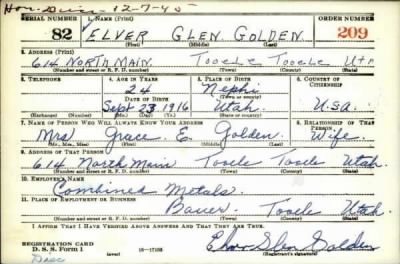 Hon. Disc. 12-7-45
SERIAL NUMBER 1. NAME (Print) ORDER NUMBER
82 ELVER GLEN GOLDEN 209
(First) (Middle) (Last)
3. ADDRESS (Print)
614 NORTH MAIN. Tooele Tooele Utah
(Number and street or R. F. D. number) (Town) (County) (State)
3. TELEPHONE 4. AGE IN YEARS 5. PLACE OF BIRTH 6. COUNTRY OF CITIZENSHIP
24 Nephi
DATE OF BIRTH (Town or county)
Sept 23 1916 Utah U.S.a.
(Exchange) (Number) (Mo.) (Day) (Yr.) (State or country)
7. NAME OF PERSON WHO WILL ALWAYS KNOW YOUR ADDRESS 8. RELATIONSHIP OF THAT PERSON
Mrs Grace E. Golden. Wife.
(Mr., Mrs., Miss) (First) (Middle) (Last)
9. ADDRESS OF THAT PERSON
614 North Main Tooele Tooele Utah.
(Number and street or R. F. D. number) (Town) (County) (State)
10. EMPLOYER'S NAME
Combined Metals.
11. PLACE OF EMPLOYMENT OR BUSINESS
Bauer. Tooele Utah.
(Number and street or R. F. D. number) (Town) (County) (State)
I AFFIRM THAT I HAVE VERIFIED ABOVE ANSWERS AND THAT THEY ARE TRUE.
REGISTRATION CARD
D. S. S. FORM 1 (over) 16-17105 Elver Glen Golden
(Registrant's signature)
Disc